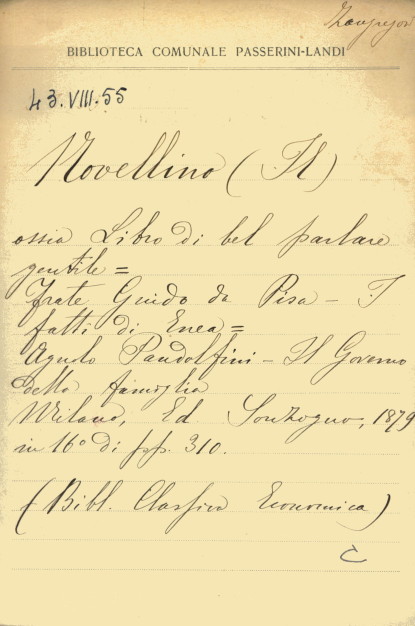 BIBLIOTECA COMUNALE PASSERINI-LANDI
43.VIII.55
Novellino (Il)
ossia Libro di bel parlare
gentile =
Frate Guido da Pisa - I
fatti di Enea =
Agnolo Pandolfini - Il Governo
della famiglia
Milano, Ed Sonzogno, 1879
in 16° di pp. 310.
(Bibl. Classica Economica)
C